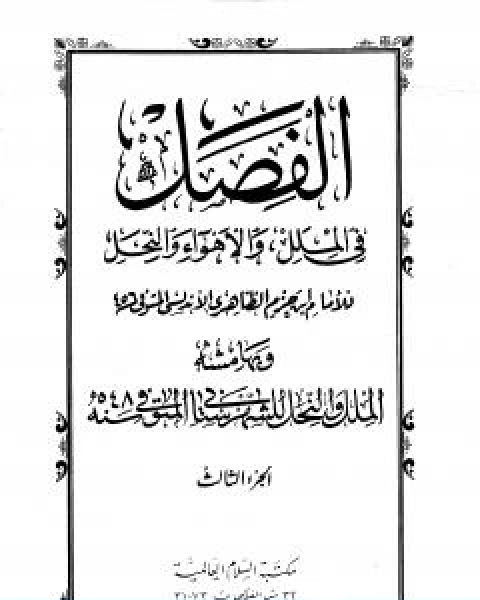 الفصل
في الملل والأهواء والنحل
للامام ابن حزم الظاهري الأندلسي المتوفى ٤٥٦
وبهامشه
الملل والنحل للشهرستاني المتوفى سنة ٥٤٨
الجزء الثالث
مكتبة السلام العالمية
٣٢ ش الفلكي ت